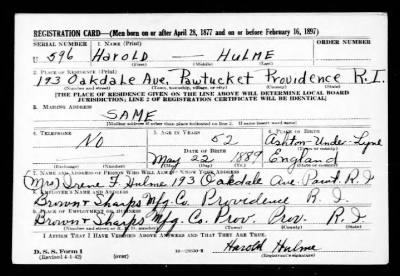 REGISTRATION CARD—(Men born on or after April 28, 1877 and on or before February 16, 1897)
SERIAL NUMBER 1. NAME (Print)
U 596 Harold — Hulme
(First) (Middle) (Last)
2. PLACE OF RESIDENCE (Print)
193 Oakdale Ave, Pawtucket Providence R.I.
(Number and street) (Town, township, village, or city) (County) (State)
[THE PLACE OF RESIDENCE GIVEN ON THE LINE ABOVE WILL DETERMINE LOCAL BOARD
JURISDICTION; LINE 2 OF REGISTRATION CERTIFICATE WILL BE IDENTICAL]
3. MAILING ADDRESS
SAME
[Mailing address if other than place indicated on line 2. If same insert word same]
4. TELEPHONE 5. AGE IN YEARS 6. PLACE OF BIRTH
No 52 Ashton-Under-Lyne
DATE OF BIRTH (Town or county)
May 22 1889 England
(Exchange) (Number) (Mo.) (Day) (Yr.) (State or country)
7. NAME AND ADDRESS OF PERSON WHO WILL ALWAYS KNOW YOUR ADDRESS
(Mrs) Irene F. Hulme 193 Oakdale Ave. Pawt. R.I
8. EMPLOYER'S NAME AND ADDRESS
Brown & Sharps Mfg Co. Providence R. I.
9. PLACE OF EMPLOYMENT OR BUSINESS
Brown & Sharps Mfg. Co. Prov. Prov. R. I
(Number and street or R. F. D. number) (Town) (County) (State)
I AFFIRM THAT I HAVE VERIFIED ABOVE ANSWERS AND THAT THEY ARE TRUE.
D. S. S. Form 1
(Revised 4-1-42) (over) Harold Hulme
(Registrant's signature)